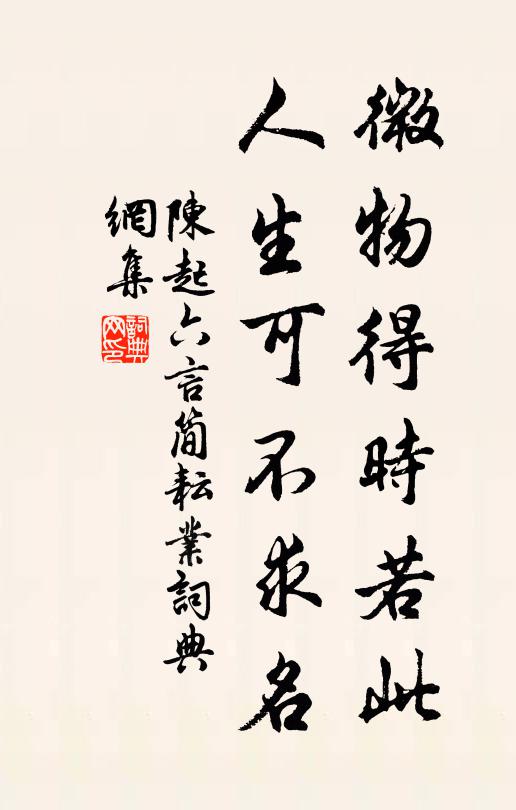 微物得時若此
人生可不求名
陳起六言簡耘業詞典
網集
詞典
网印